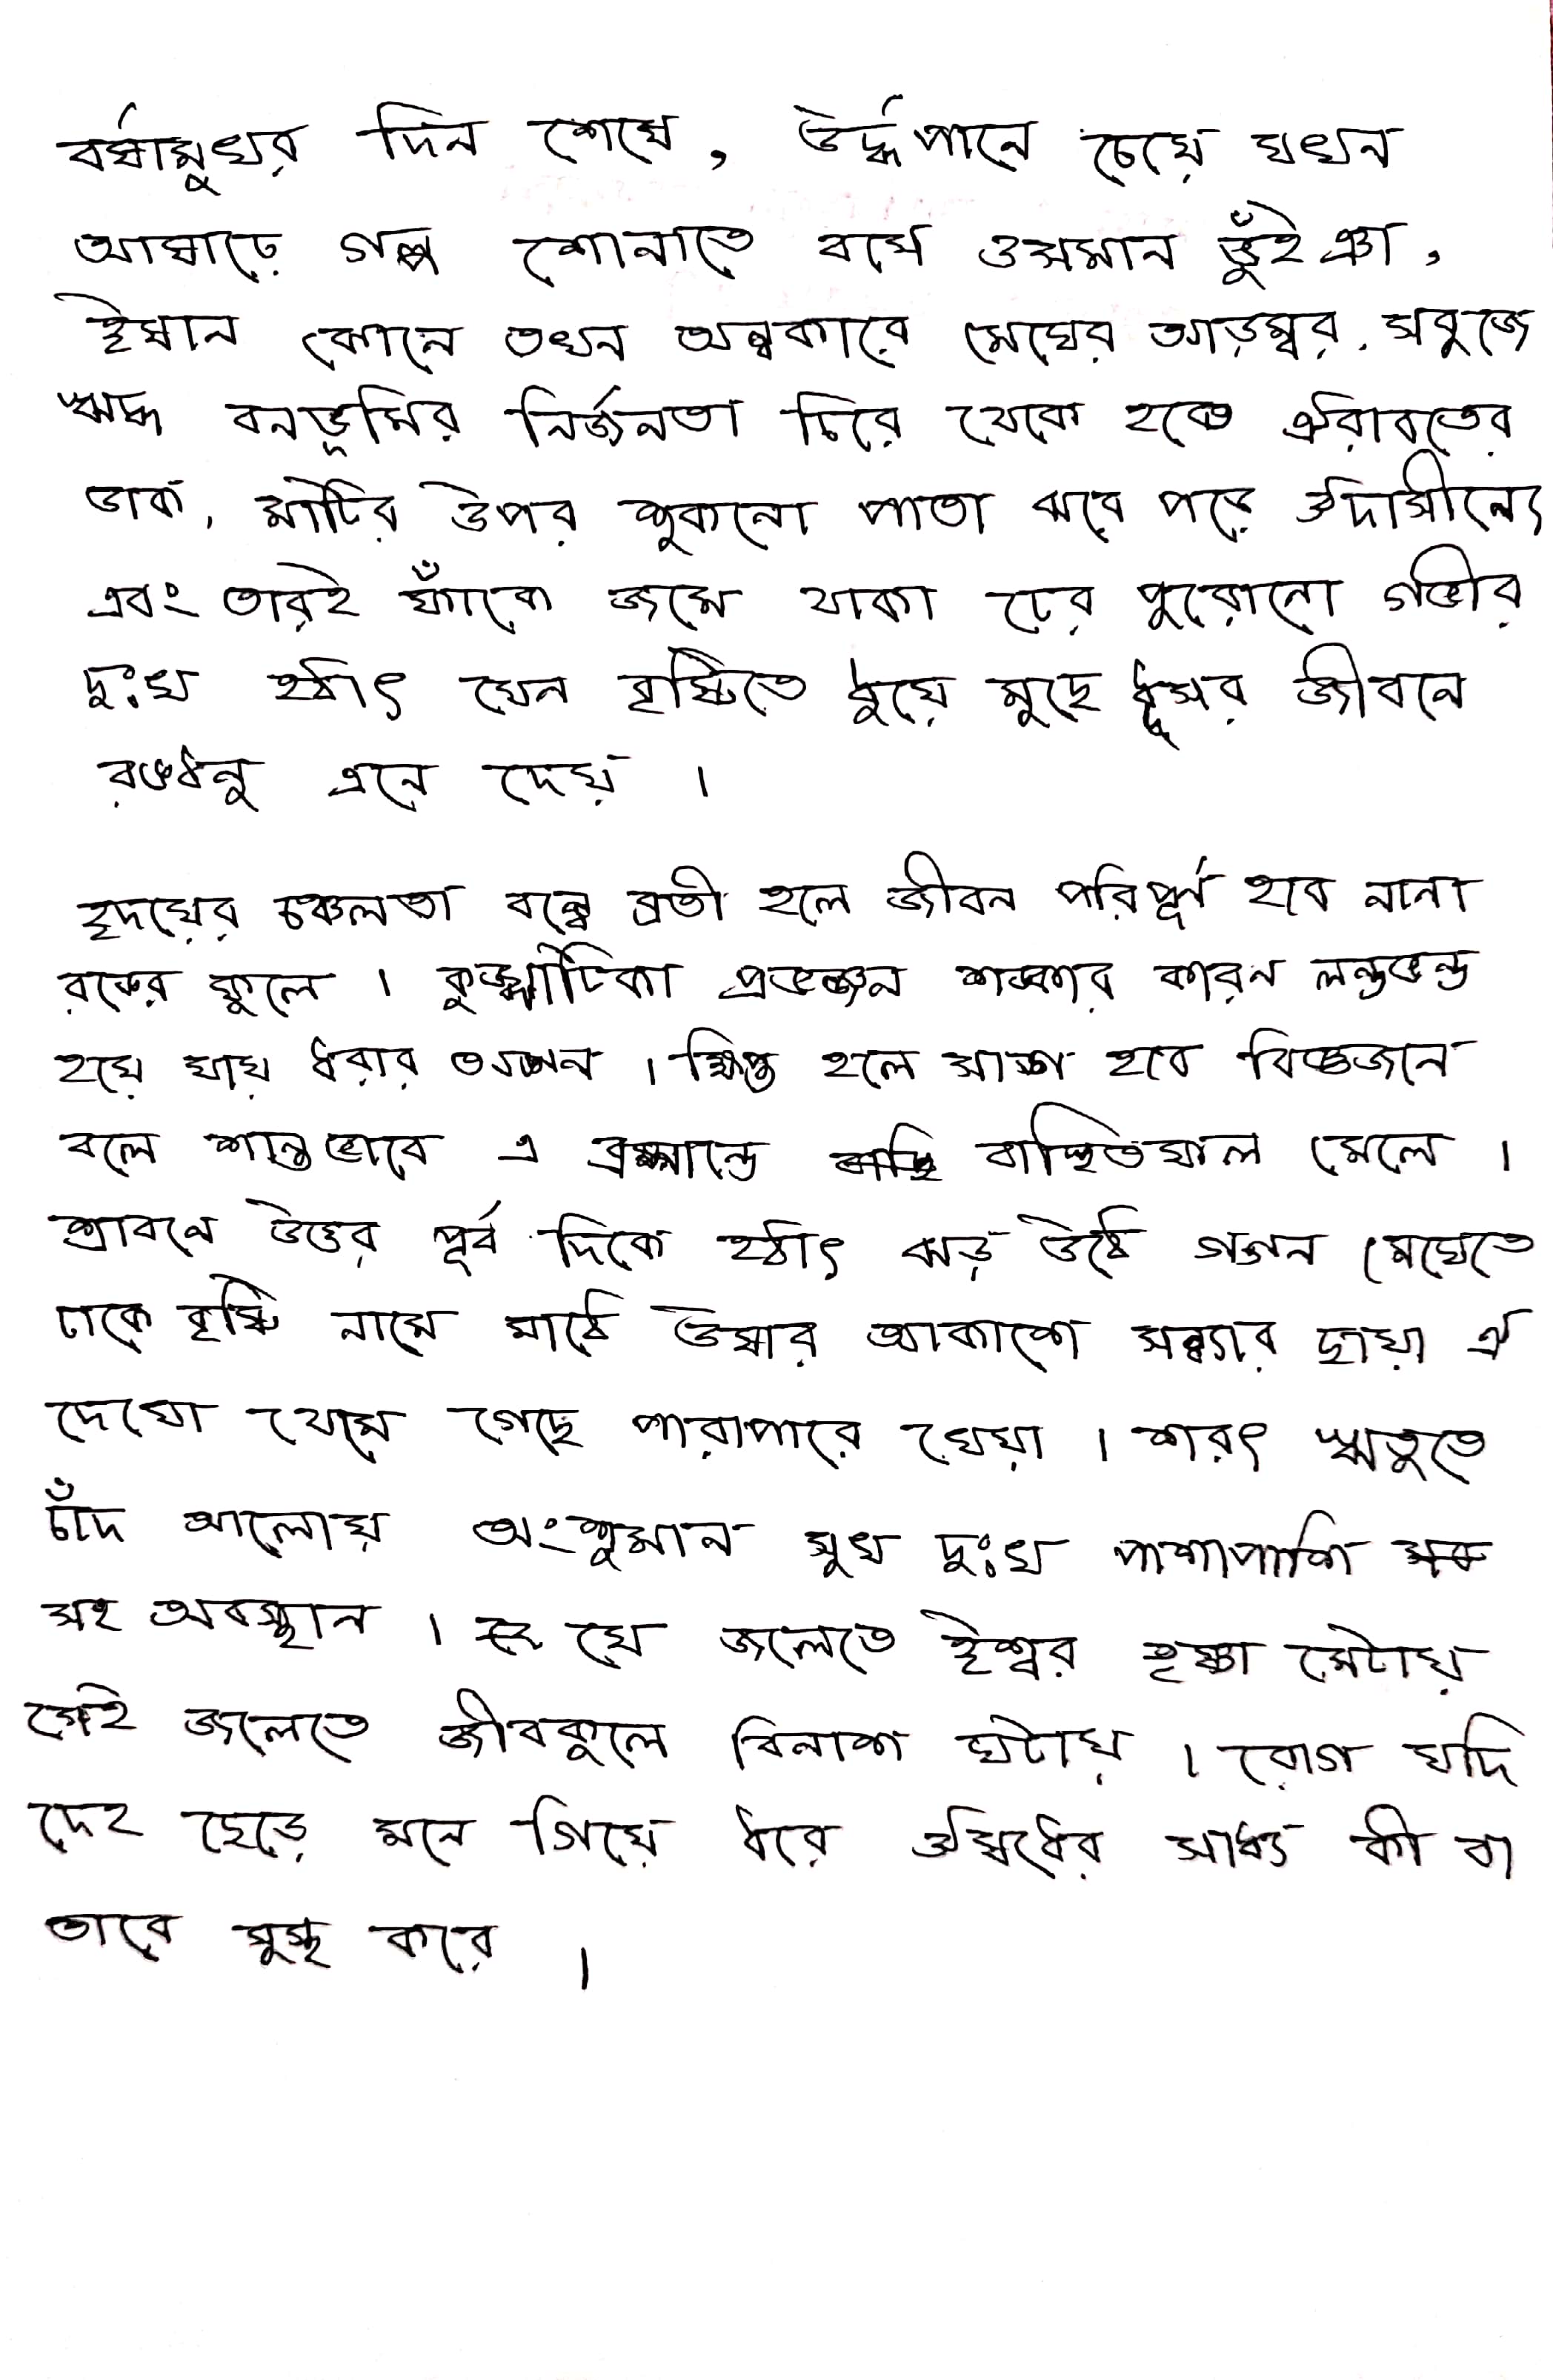 বর্ষামুখর দিন শেষে, উর্দ্ধপানে চেয়ে যখন
আষাঢ়ে গল্প শোনাতে বসে ওসমান ভুঁইঞা,
ঈষান কোনে তখন অন্ধকারে মেঘের আড়ম্বর, সবুজে
ঋদ্ধ বনভূমির নির্জনতা চিরে থেকে থেকে ঐরাবতের
ডাক, মাটির উপর শুকনো পাতা ঝরে পড়ে ঔদাসীন্যে
এবং তারই ফাঁকে জমে থাকা ঢের পুরোনো গভীর
দুঃখ হঠাৎ যেন বৃষ্টিতে ধুয়ে মুছে ধূসর জীবনে
রঙধনু এনে দেয়।
হৃদয়ের চঞ্চলতা বন্ধে ব্রতী হলে জীবন পরিপূর্ণ হবে নানা
রঙের ফুলে। কুজ্ঝটিকা প্রভঞ্জন শঙ্কার কারন লন্ডভন্ড
হয়ে যায় ধরার অঙ্গন। ক্ষিপ্ত হলে সাঙ্গ হবে বিজ্ঞজনে
বলে শান্তভাবে এ ব্রহ্মান্ডে বাঞ্ছিতফল মেলে।
শ্রাবনে উত্তর পূর্ব দিকে হঠাৎ ঝড় উঠে গগন মেঘেতে
ঢাকে বৃষ্টি নামে মাঠে উষার আকাশে সন্ধ্যার ছায়া ঐ
দেখো থেমে গেছে পারাপারে খেয়া। শরৎ ঋতুতে
চাঁদ আলোয় অংশুমান সুখ দুঃখ পাশাপাশি
সহ অবস্থান। যে জলেতে ঈশ্বর তৃষ্ণা মেটায়
সেই জলেতে জীবকুলে বিনাশ ঘটায়। রোগ যদি
দেহ ছেড়ে মনে গিয়ে ধরে ঔষধের সাধ্য কী বা
তারে সুস্থ করে।